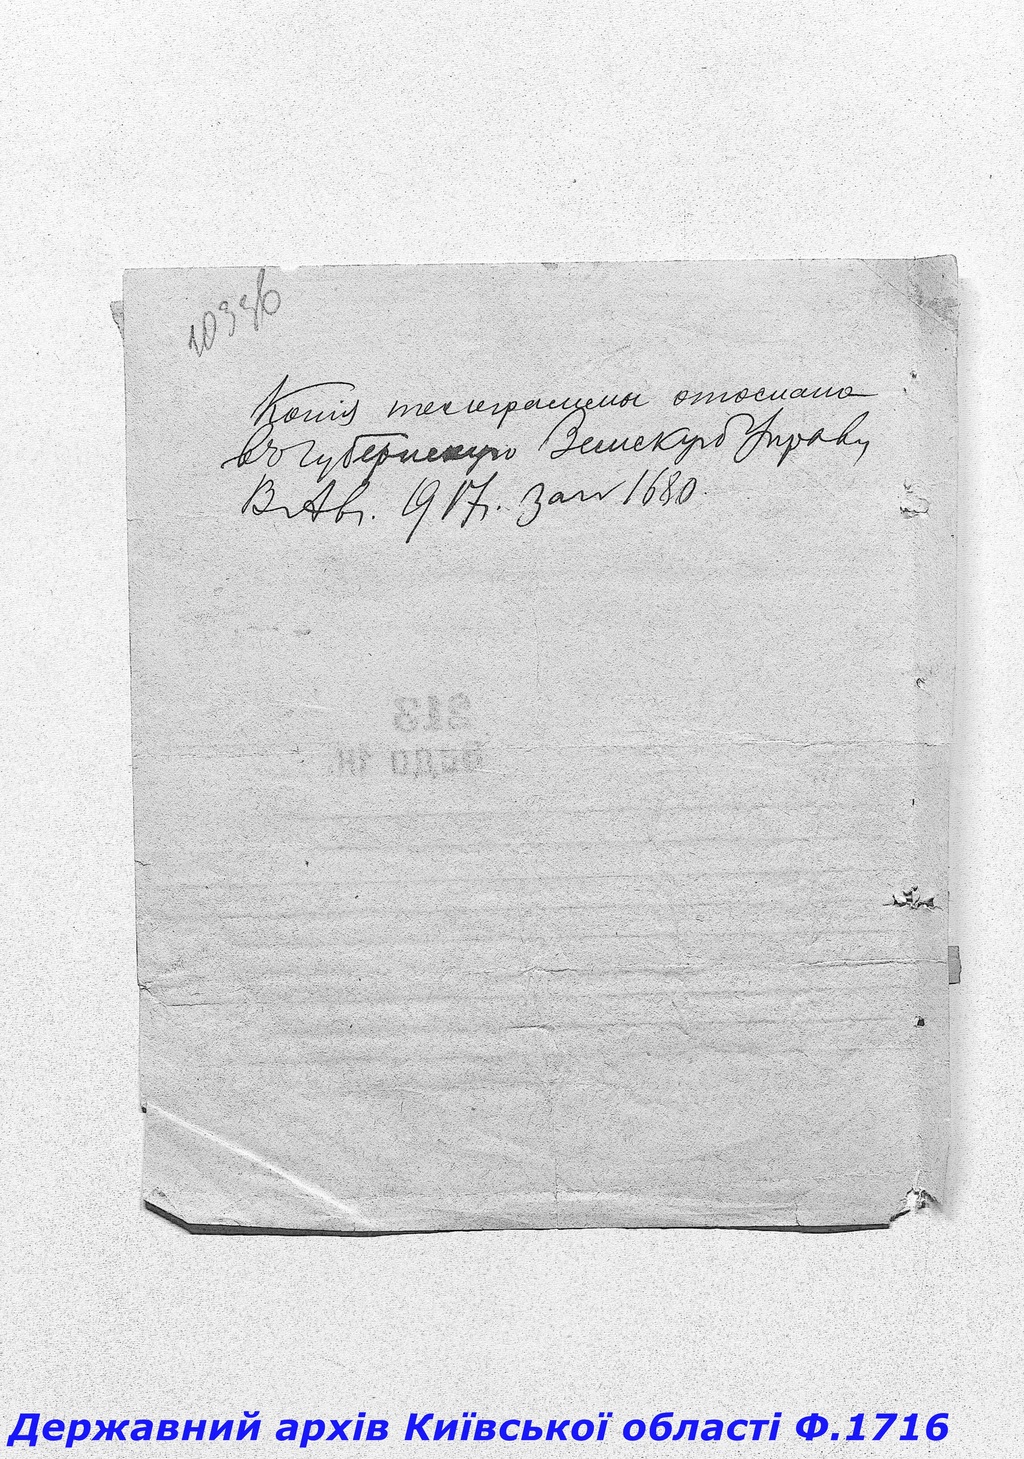 Копія телеграммы отослана
въ Губернскую Земскую Управу
Авг. 917г. за № 1680.
313
Державний архів Київської області Ф.1716